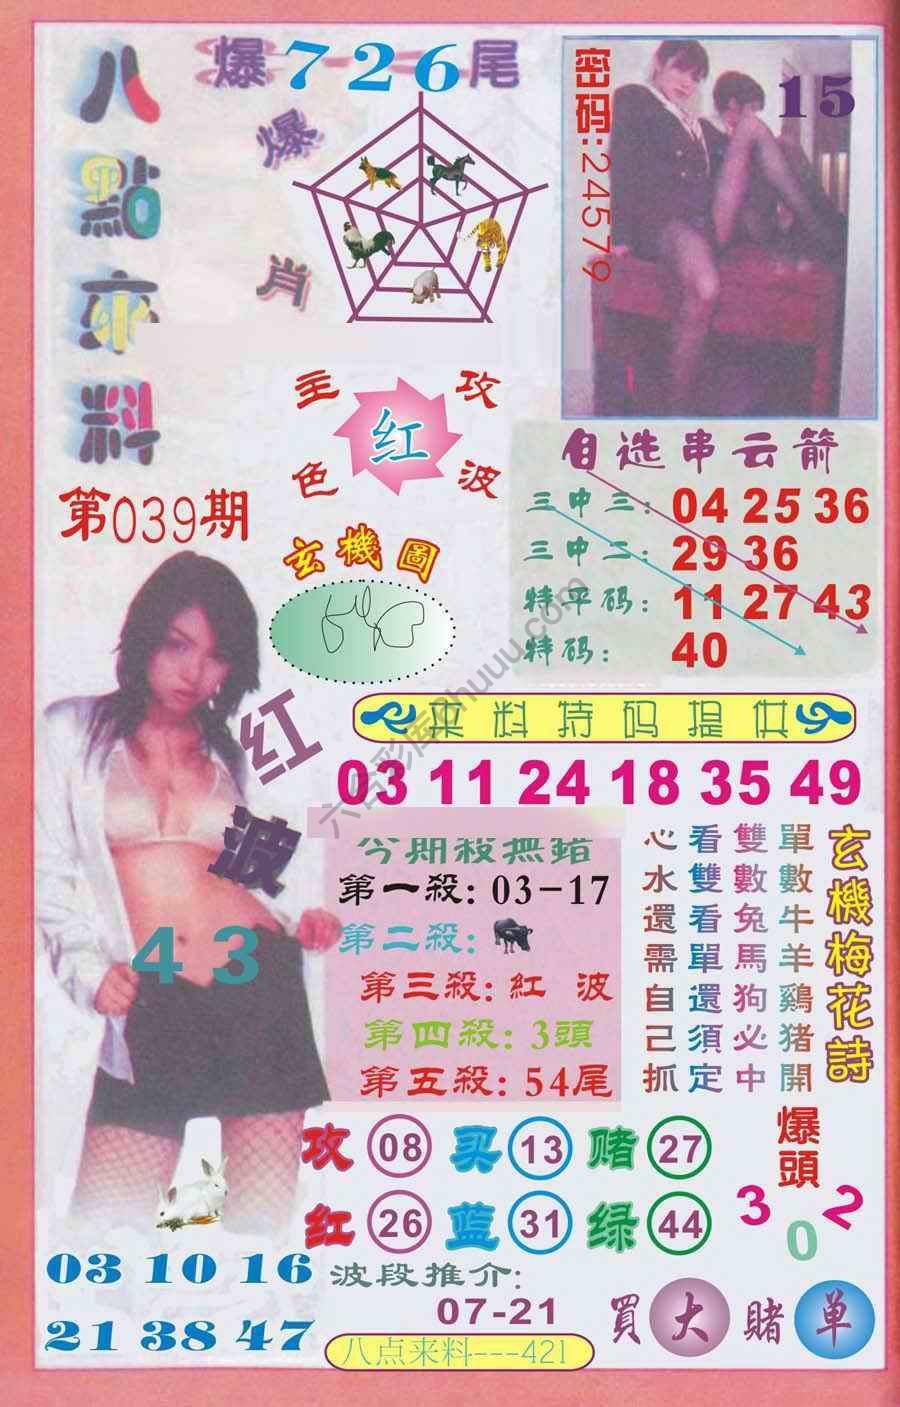 八點來料
爆726尾
爆肖
密码:24579
15
主攻
红
色波
第039期
玄機圖
自选串云箭
三中三: 04 25 36
三中二: 29 36
特平码: 11 27 43
特码: 40
来料特码提供
03 11 24 18 35 49
红波
43
今期殺無錯
第一殺: 03-17
第二殺:
第三殺: 紅 波
第四殺: 3頭
第五殺: 54尾
玄機梅花詩
單數牛羊鷄猪開
雙數兔馬狗必中
看雙看單還須定
心水還需自己抓
攻 08 买 13 赌 27
红 26 蓝 31 绿 44
爆頭
3 0 2
03 10 16
21 38 47
波段推介:
07-21
買大賭单
八点来料---421